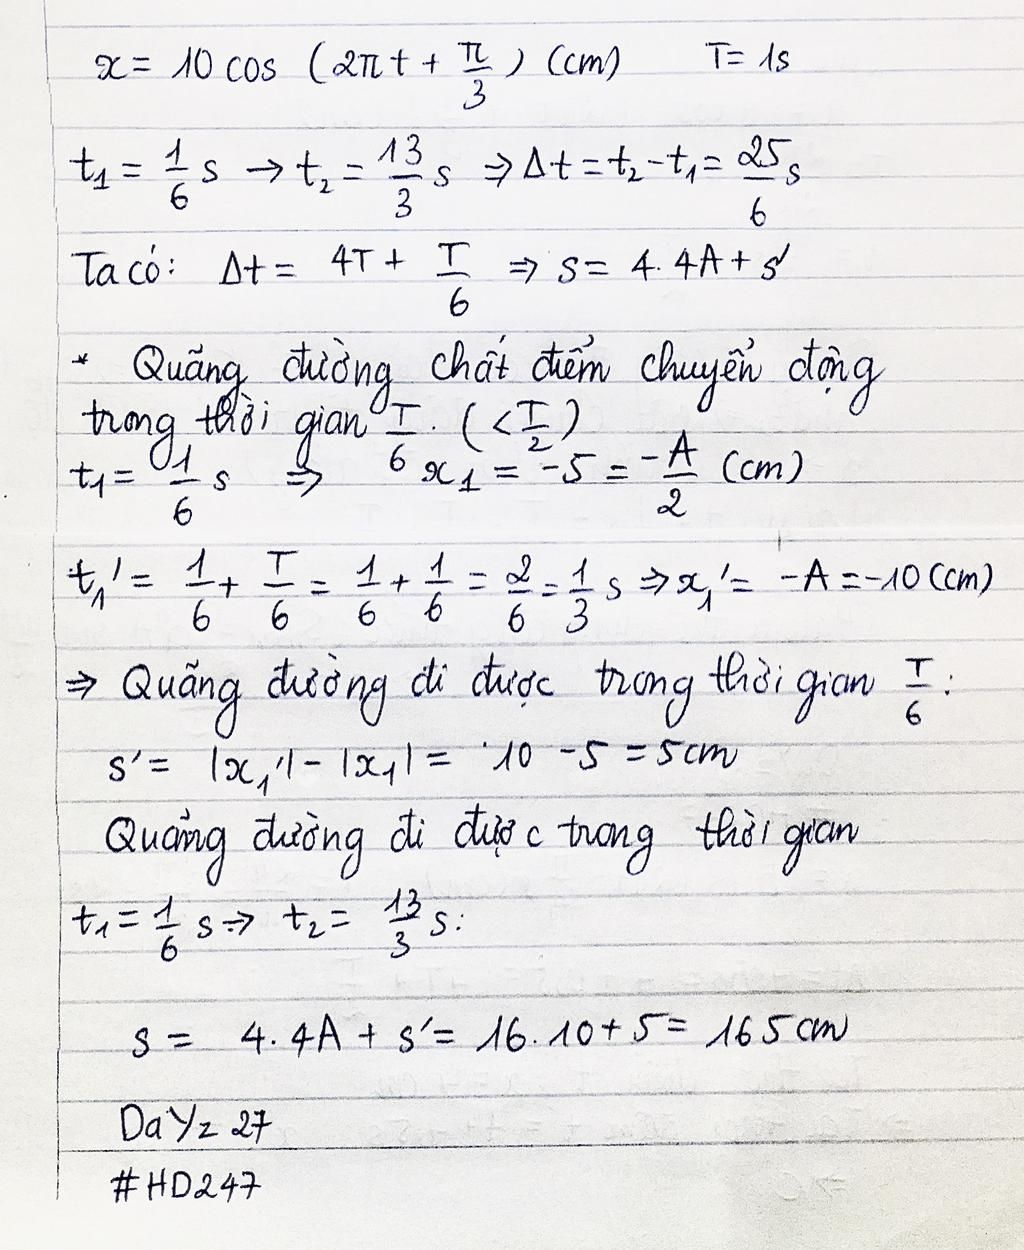 x = 10 cos (2πt + π/3) (cm) T = 1s
t₁ = 1/6 s → t₂ = 13/3 s ⇒ Δt = t₂ - t₁ = 25/6 s
Ta có: Δt = 4T + T/6 ⇒ s = 4.4A + s'
* Quãng đường chất điểm chuyển động
trong thời gian T/6. (< T/2)
t₁ = 1/6 s ⇒ x₁ = -5 = -A/2 (cm)
t₁' = 1/6 + T/6 = 1/6 + 1/6 = 2/6 = 1/3 s ⇒ x₁' = -A = -10 (cm)
⇒ Quãng đường đi được trong thời gian T/6:
s' = |x₁'| - |x₁| = 10 - 5 = 5 cm
Quảng đường đi được trong thời gian
t₁ = 1/6 s ⇒ t₂ = 13/3 s:
s = 4.4A + s' = 16.10 + 5 = 165 cm
DaYz 27
#HD247